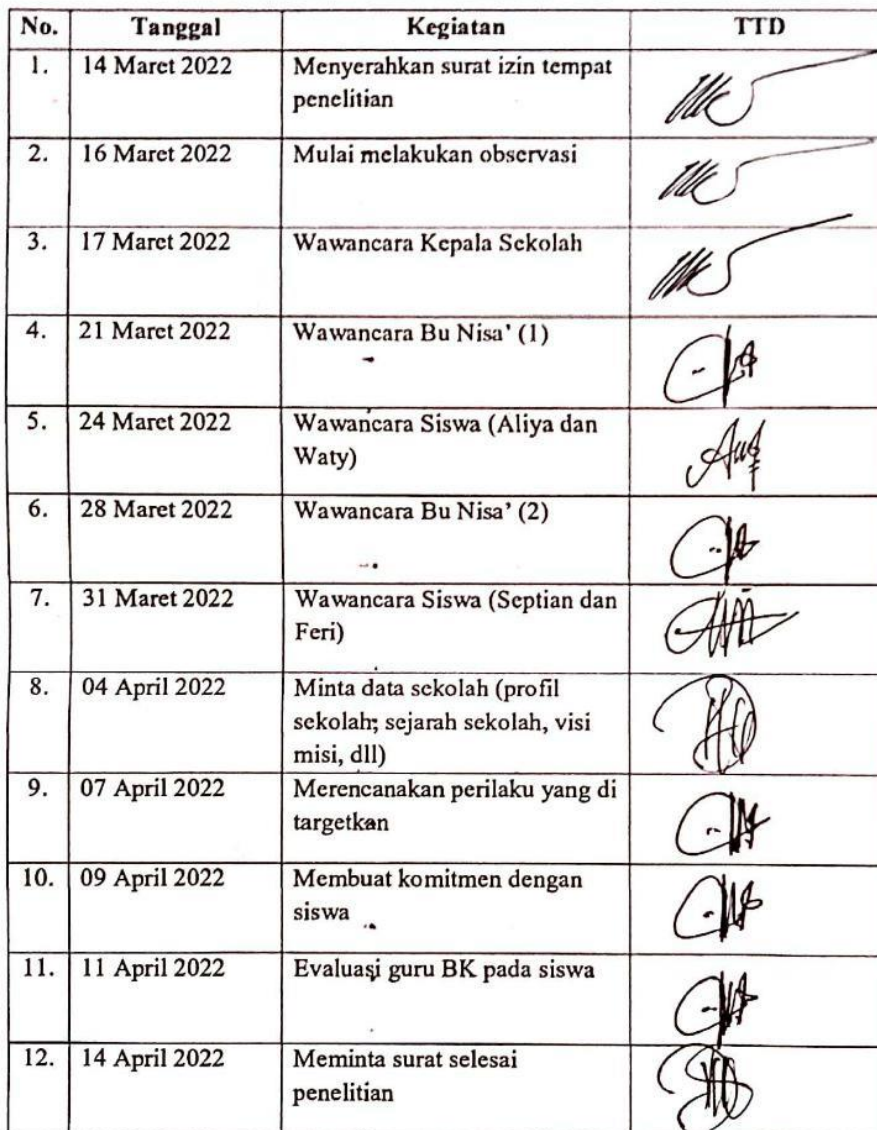 No. Tanggal Kegiatan TTD
1. 14 Maret 2022 Menyerahkan surat izin tempat
penelitian
2. 16 Maret 2022 Mulai melakukan observasi
3. 17 Maret 2022 Wawancara Kepala Sekolah
4. 21 Maret 2022 Wawancara Bu Nisa' (1)
5. 24 Maret 2022 Wawancara Siswa (Aliya dan
Waty)
6. 28 Maret 2022 Wawancara Bu Nisa' (2)
7. 31 Maret 2022 Wawancara Siswa (Septian dan
Feri)
8. 04 April 2022 Minta data sekolah (profil
sekolah; sejarah sekolah, visi
misi, dll)
9. 07 April 2022 Merencanakan perilaku yang di
targetkan
10. 09 April 2022 Membuat komitmen dengan
siswa
11. 11 April 2022 Evaluasi guru BK pada siswa
12. 14 April 2022 Meminta surat selesai
penelitian